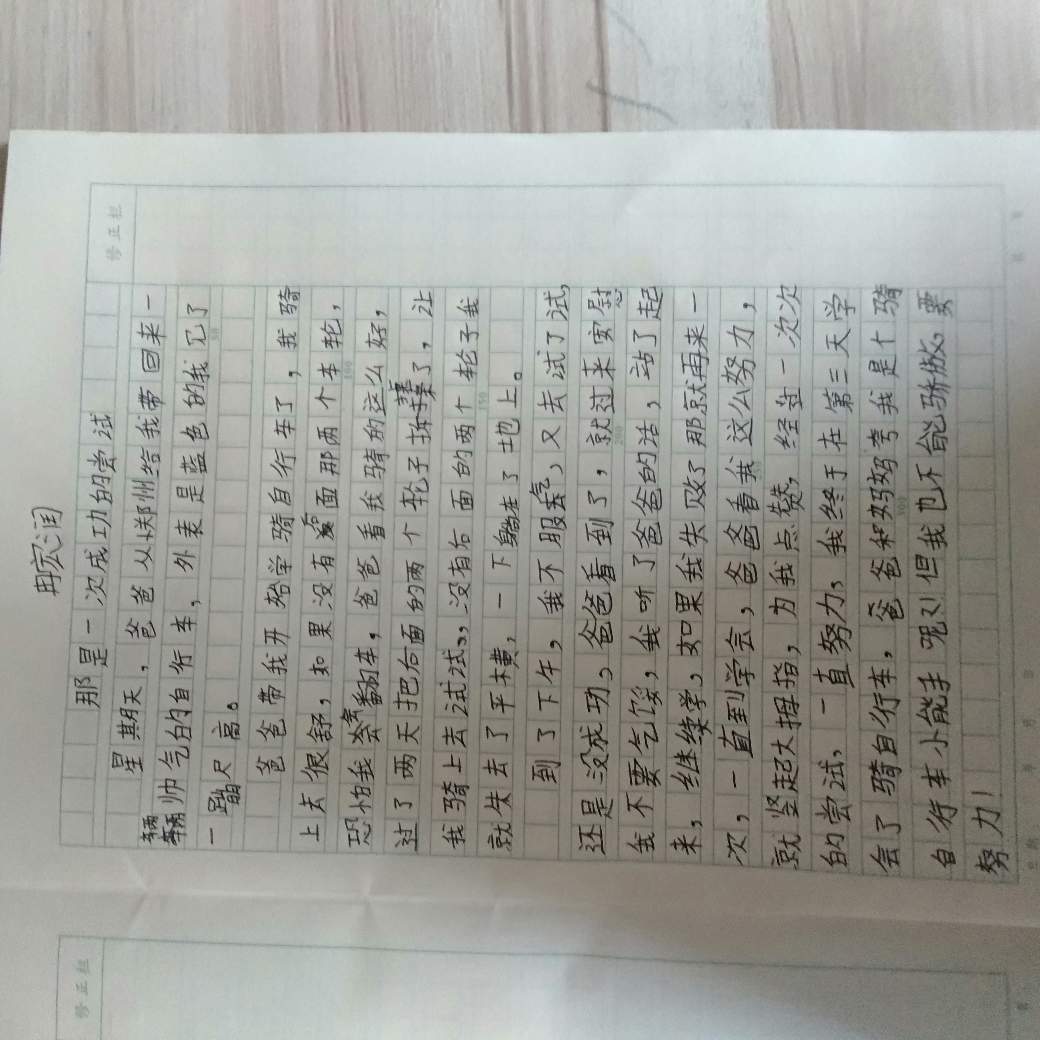 冉宏润
那是一次成功的尝试
修正栏
星期天，爸爸从郑州给我带回来一
辆帅气的自行车，外表是蓝色的我见了
一蹦尺高。
爸爸带我开始学骑自行车了，我骑
上去很舒，如果没有后面那两个本轮，
恐怕我会翻车，爸爸看我骑的这么好，
过了两天把后面的两个轮子拆了，让
我骑上去试试，没有右面的两个轮子我
就失去了平横，一下躺在了地上。
到了下午，我不服气，又去试了试，
还是没成功，爸爸看到了，就过来安慰
我不要气馁，我听了爸爸的话，站了起
来，继续学，如果我失败了那就再来一
次，一直到学会，爸爸看我这么努力，
就竖起大拇指，为我点赞，经过一次次
的尝试，一直努力，我终于在第三天学
会了骑自行车，爸爸和妈妈夸我是个骑
自行车小能手呢！但我也不能骄傲，要
努力！
修正栏